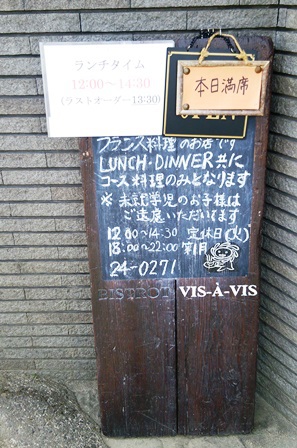 ランチタイム
12:00～14:30
(ラストオーダー13:30)
本日満席
OPEN
フランス料理のお店です
LUNCH・DINNER共に
コース料理のみとなります
※未就学児のお子様は
ご遠慮いただいてます
12:00~14:30 定休日(火)
18:00~22:00 第1月
24-0271
BISTROT VIS-À-VIS